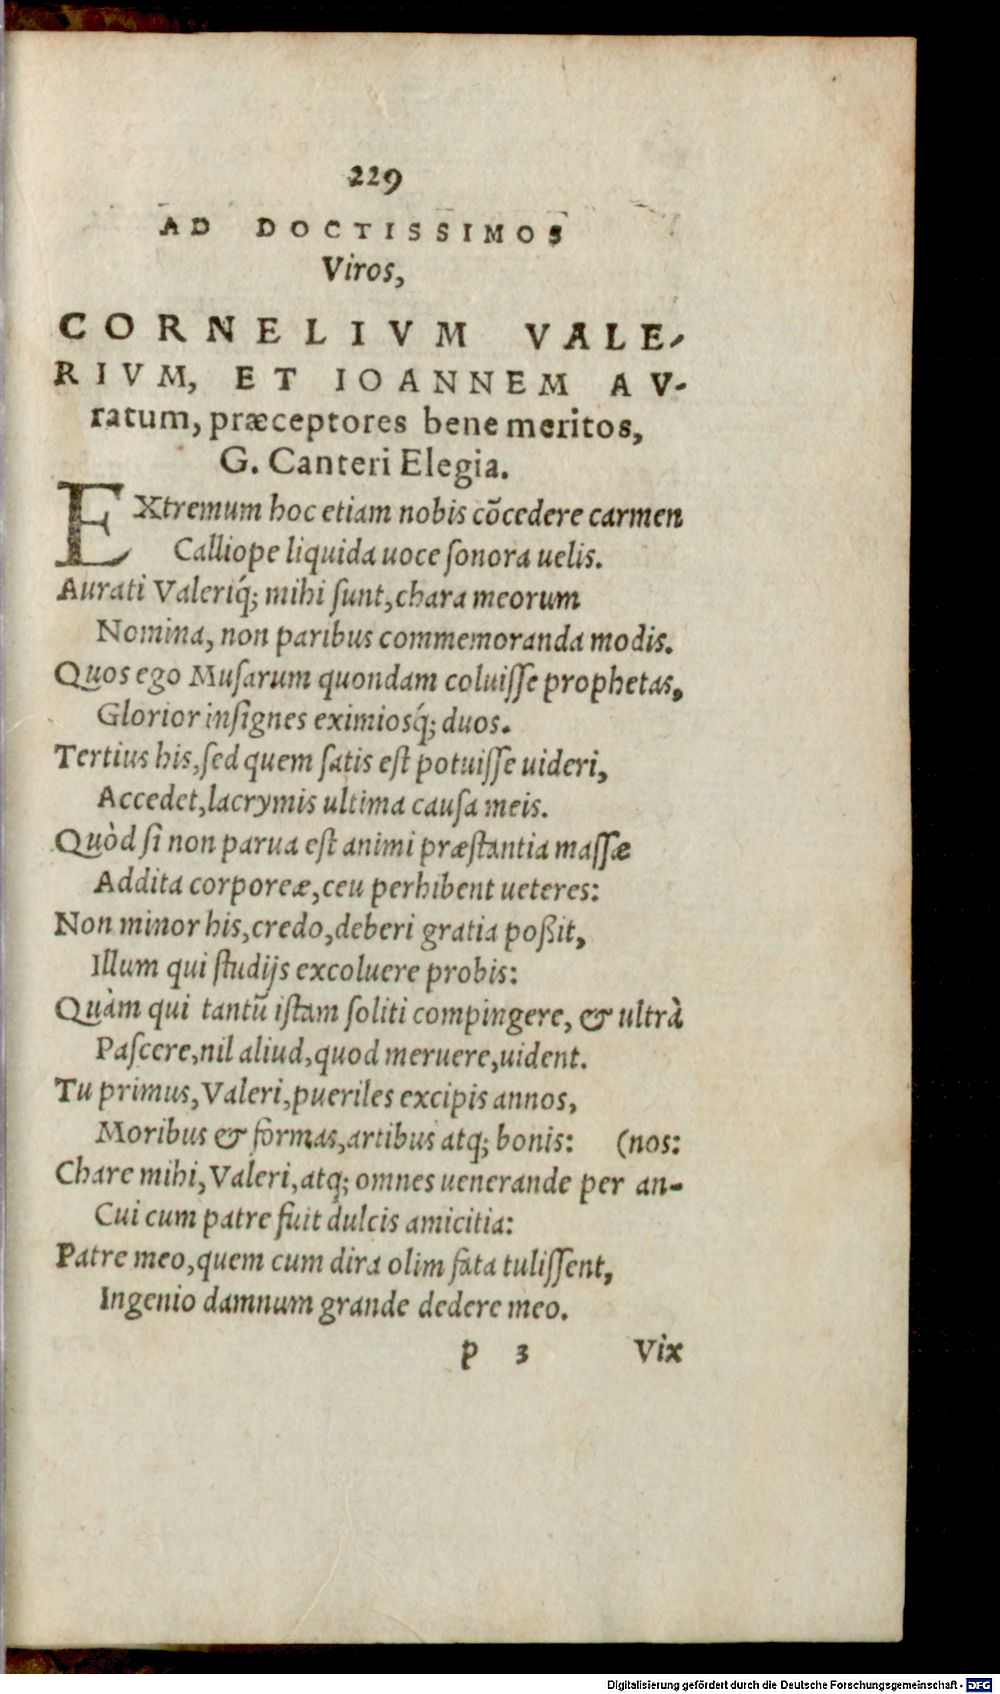 229
AD DOCTISSIMOS
Viros,
CORNELIVM VALE-
RIVM, ET IOANNEM AV-
ratum, præceptores bene meritos,
G. Canteri Elegia.
EXtremum hoc etiam nobis cõcedere carmen
Calliope liquida uoce ſonora uelis.
Aurati Valeriq́; mihi ſunt, chara meorum
Nomina, non paribus commemoranda modis.
Quos ego Muſarum quondam coluiſſe prophetas,
Glorior inſignes eximiosq́; duos.
Tertius his, ſed quem ſatis eſt potuiſſe uideri,
Accedet, lacrymis ultima cauſa meis.
Quòd ſi non parua eſt animi præſtantia maſſæ
Addita corporeæ, ceu perhibent ueteres:
Non minor his, credo, deberi gratia poßit,
Illum qui ſtudijs excoluere probis:
Quàm qui tantũ iſtam ſoliti compingere, & ultrà
Paſcere, nil aliud, quod meruere, uident.
Tu primus, Valeri, pueriles excipis annos,
Moribus & formas, artibus atq; bonis: (nos:
Chare mihi, Valeri, atq; omnes uenerande per an-
Cui cum patre fuit dulcis amicitia:
Patre meo, quem cum dira olim fata tuliſſent,
Ingenio damnum grande dedere meo.
p 3 Vix
Digitalisierung gefördert durch die Deutsche Forschungsgemeinschaft - DFG